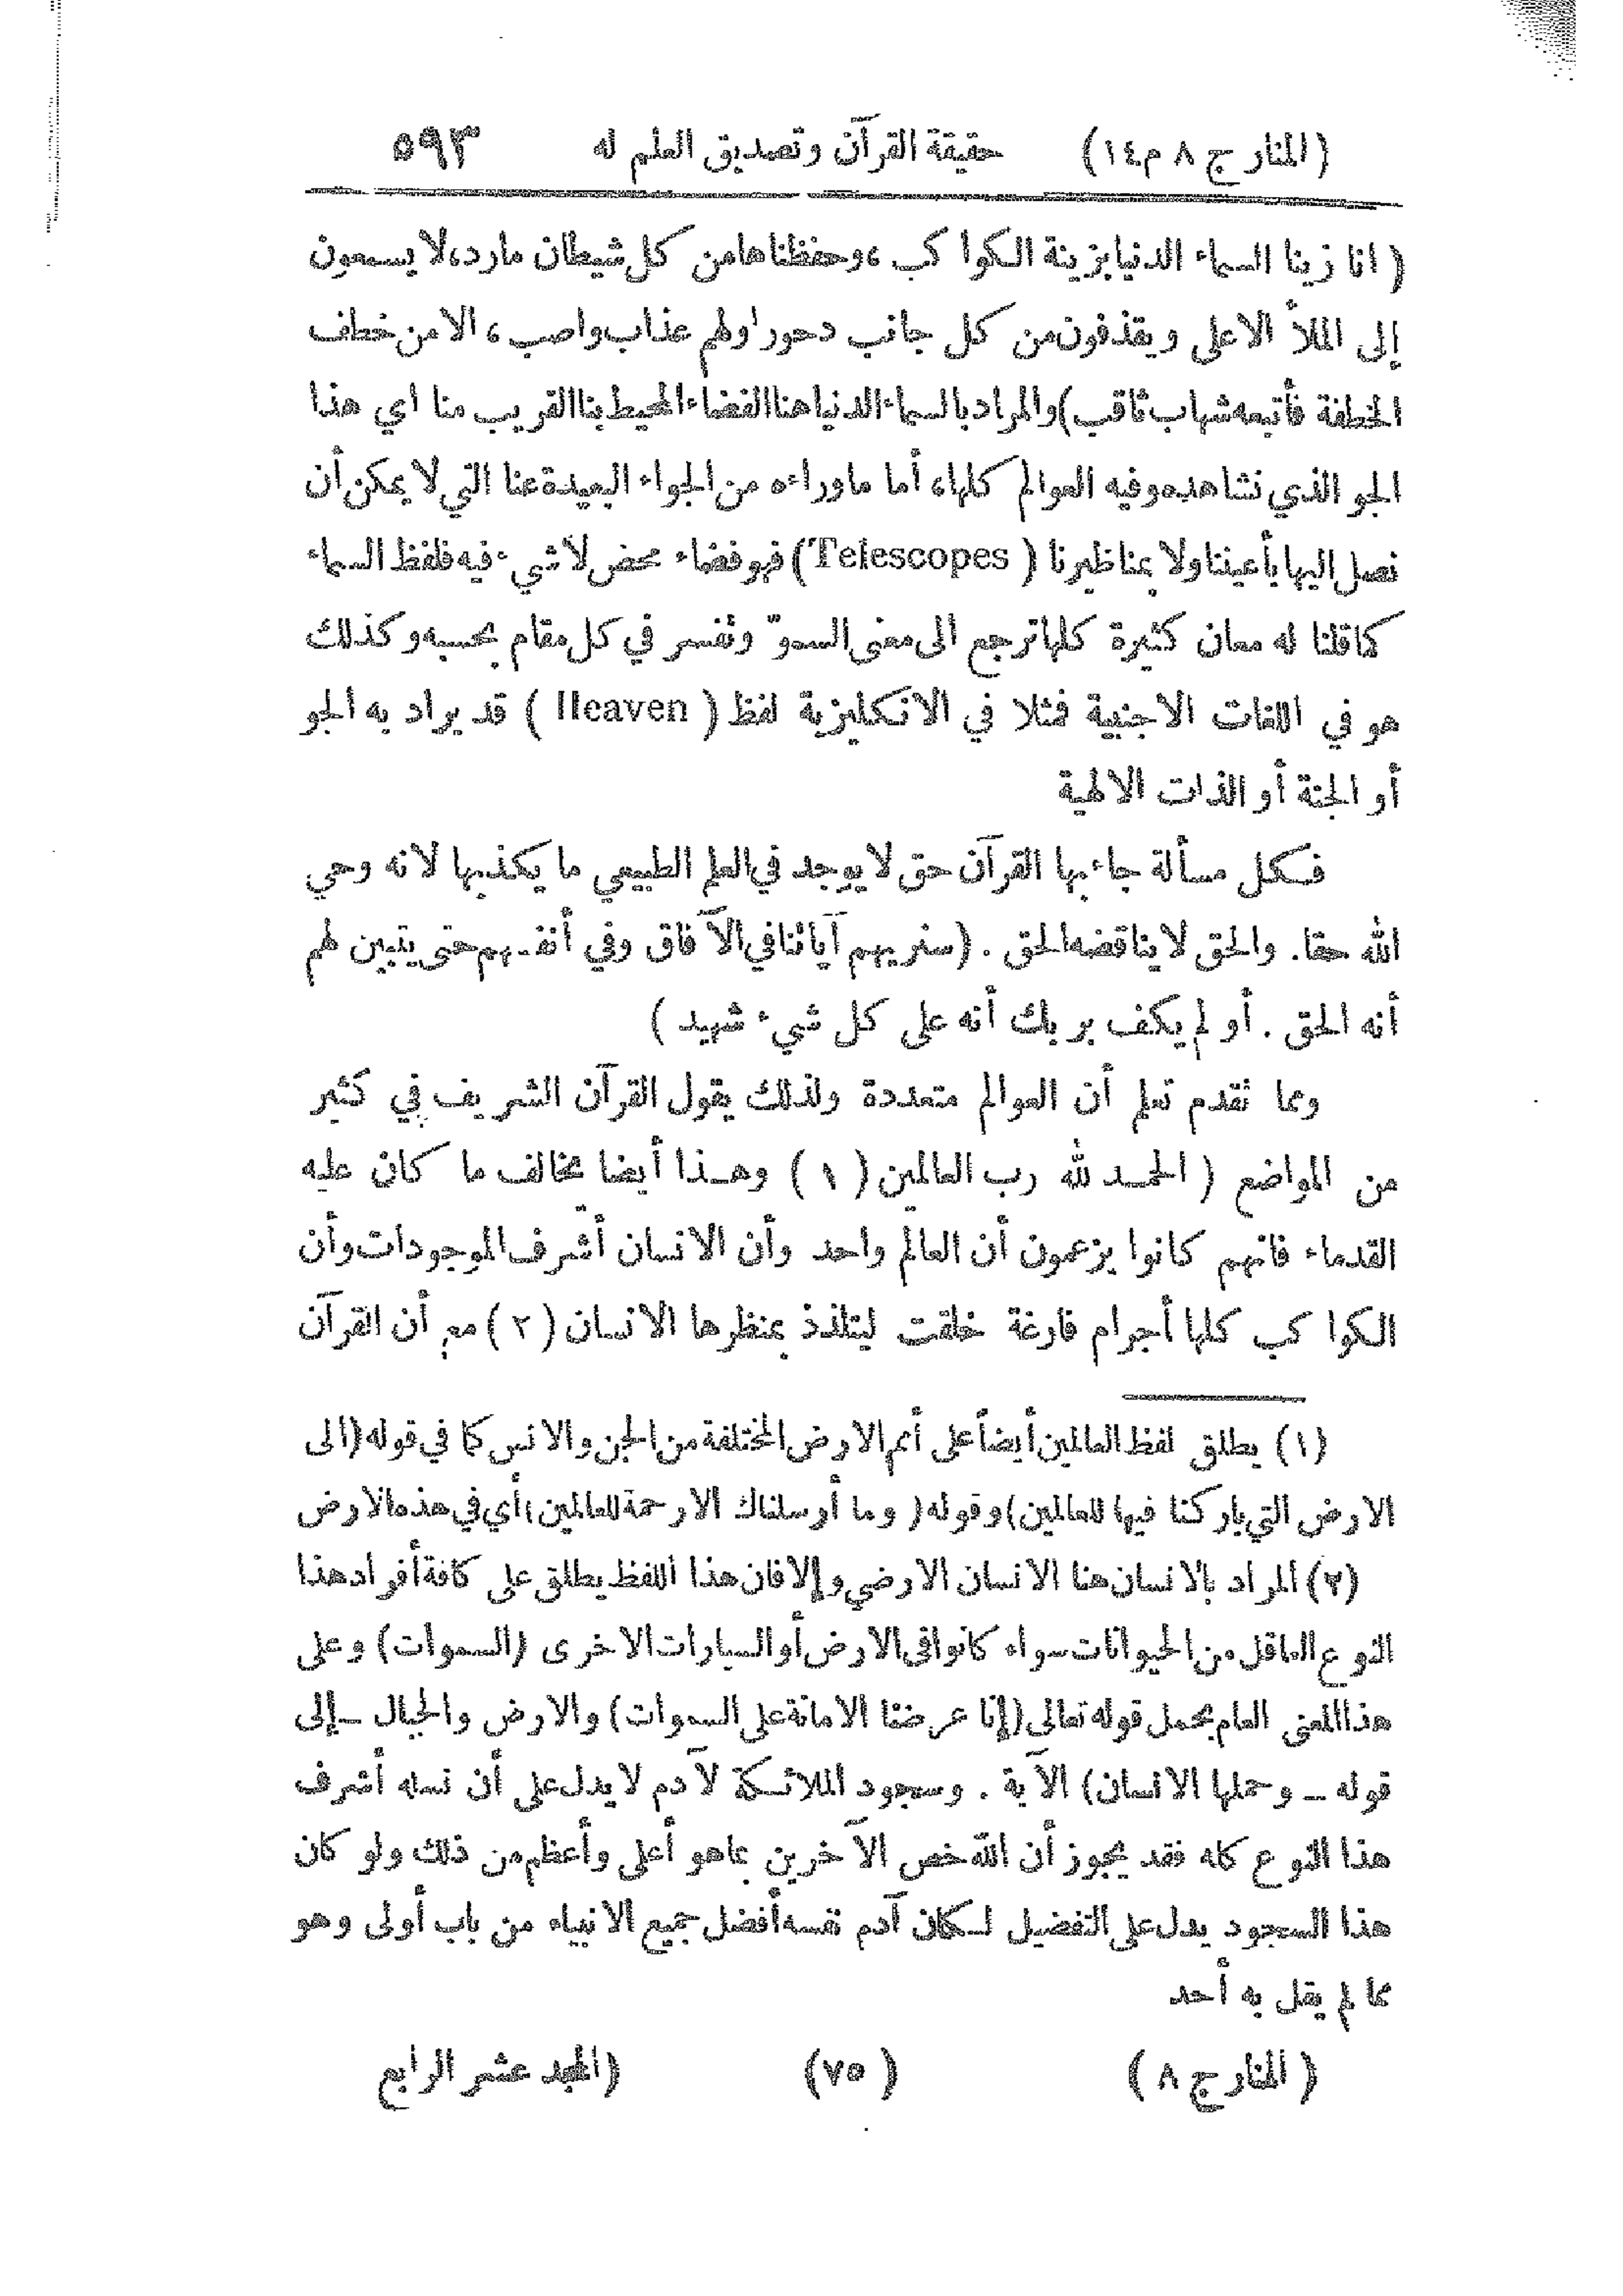 (المنار ج ٨ م ١٤) حقيقة القرآن وتصديق العلم له ٥٩٣
( انا زينا السماء الدنيا بزينة الكواكب ، وحفظناها من كل شيطان مارد، لا يسمعون
إلى الملأ الاعلى ويقذفون من كل جانب دحورا ولهم عذاب واصب ، الا من خطف
الخطفة فأتبعه شهاب ثاقب) والمراد بالسماء الدنيا هنا الفضاء المحيط بنا القريب منا اي هذا
الجو الذي نشاهده وفيه العوالم كلها، أما ما وراءه من الجواء البعيدة عنا التي لا يمكن أن
نصل اليها بأعيننا ولا بمناظيرنا ( Telescopes ) فهو فضاء محض لا شيء فيه فلفظ السماء
كما قلنا له معان كثيرة كلها ترجع الى معنى السموّ وتفسر في كل مقام بحسبه وكذلك
هو في اللغات الاجنبية فمثلا في الانكليزية لفظ ( Heaven ) قد يراد به الجو
أو الجنة أو الذات الالهية
فكل مسألة جاء بها القرآن حق لا يوجد في العلم الطبيعي ما يكذبها لانه وحي
الله حقا. والحق لا يناقضه الحق . (سنريهم آياتنا في الآفاق وفي أنفسهم حتى يتبين لهم
أنه الحق . أو لم يكف بربك أنه على كل شيء شهيد )
ومما تقدم تعلم أن العوالم متعددة ولذلك يقول القرآن الشريف في كثير
من المواضع ( الحمد لله رب العالمين ( ١ ) وهذا أيضا مخالف ما كان عليه
القدماء فانهم كانوا يزعمون أن العالم واحد وأن الانسان أشرف الموجودات وأن
الكواكب كلها أجرام فارغة خلقت ليتلذذ بمنظرها الانسان ( ٢ ) مع أن القرآن
(١) يطلق لفظ العالمين أيضاً على أمم الارض المختلفة من الجن والانس كما في قوله (الى
الارض التي باركنا فيها للعالمين) وقوله ( وما أرسلناك الا رحمة للعالمين) أي في هذه الارض
(٢) المراد بالانسان هنا الانسان الارضي وإلا فان هذا اللفظ يطلق على كافة أفراد هذا
النوع العاقل من الحيوانات سواء كانوا في الارض أو السيارات الاخرى (السموات) وعلى
هذا المعنى العام يحمل قوله تعالى (إنا عرضنا الامانة على السموات) والارض والجبال ــ إلى
قوله ــ وحملها الانسان) الآية . وسجود الملائكة لآدم لا يدل على أن نسله أشرف
هذا النوع كله فقد يجوز أن الله خص الآخرين بما هو أعلى وأعظم من ذلك ولو كان
هذا السجود يدل على التفضيل لكان آدم نفسه أفضل جميع الانبياء من باب أولى وهو
مما لم يقل به أحد
( المنار ج ٨ ) ( ٧٥ ) (المجلد عشر الرابع